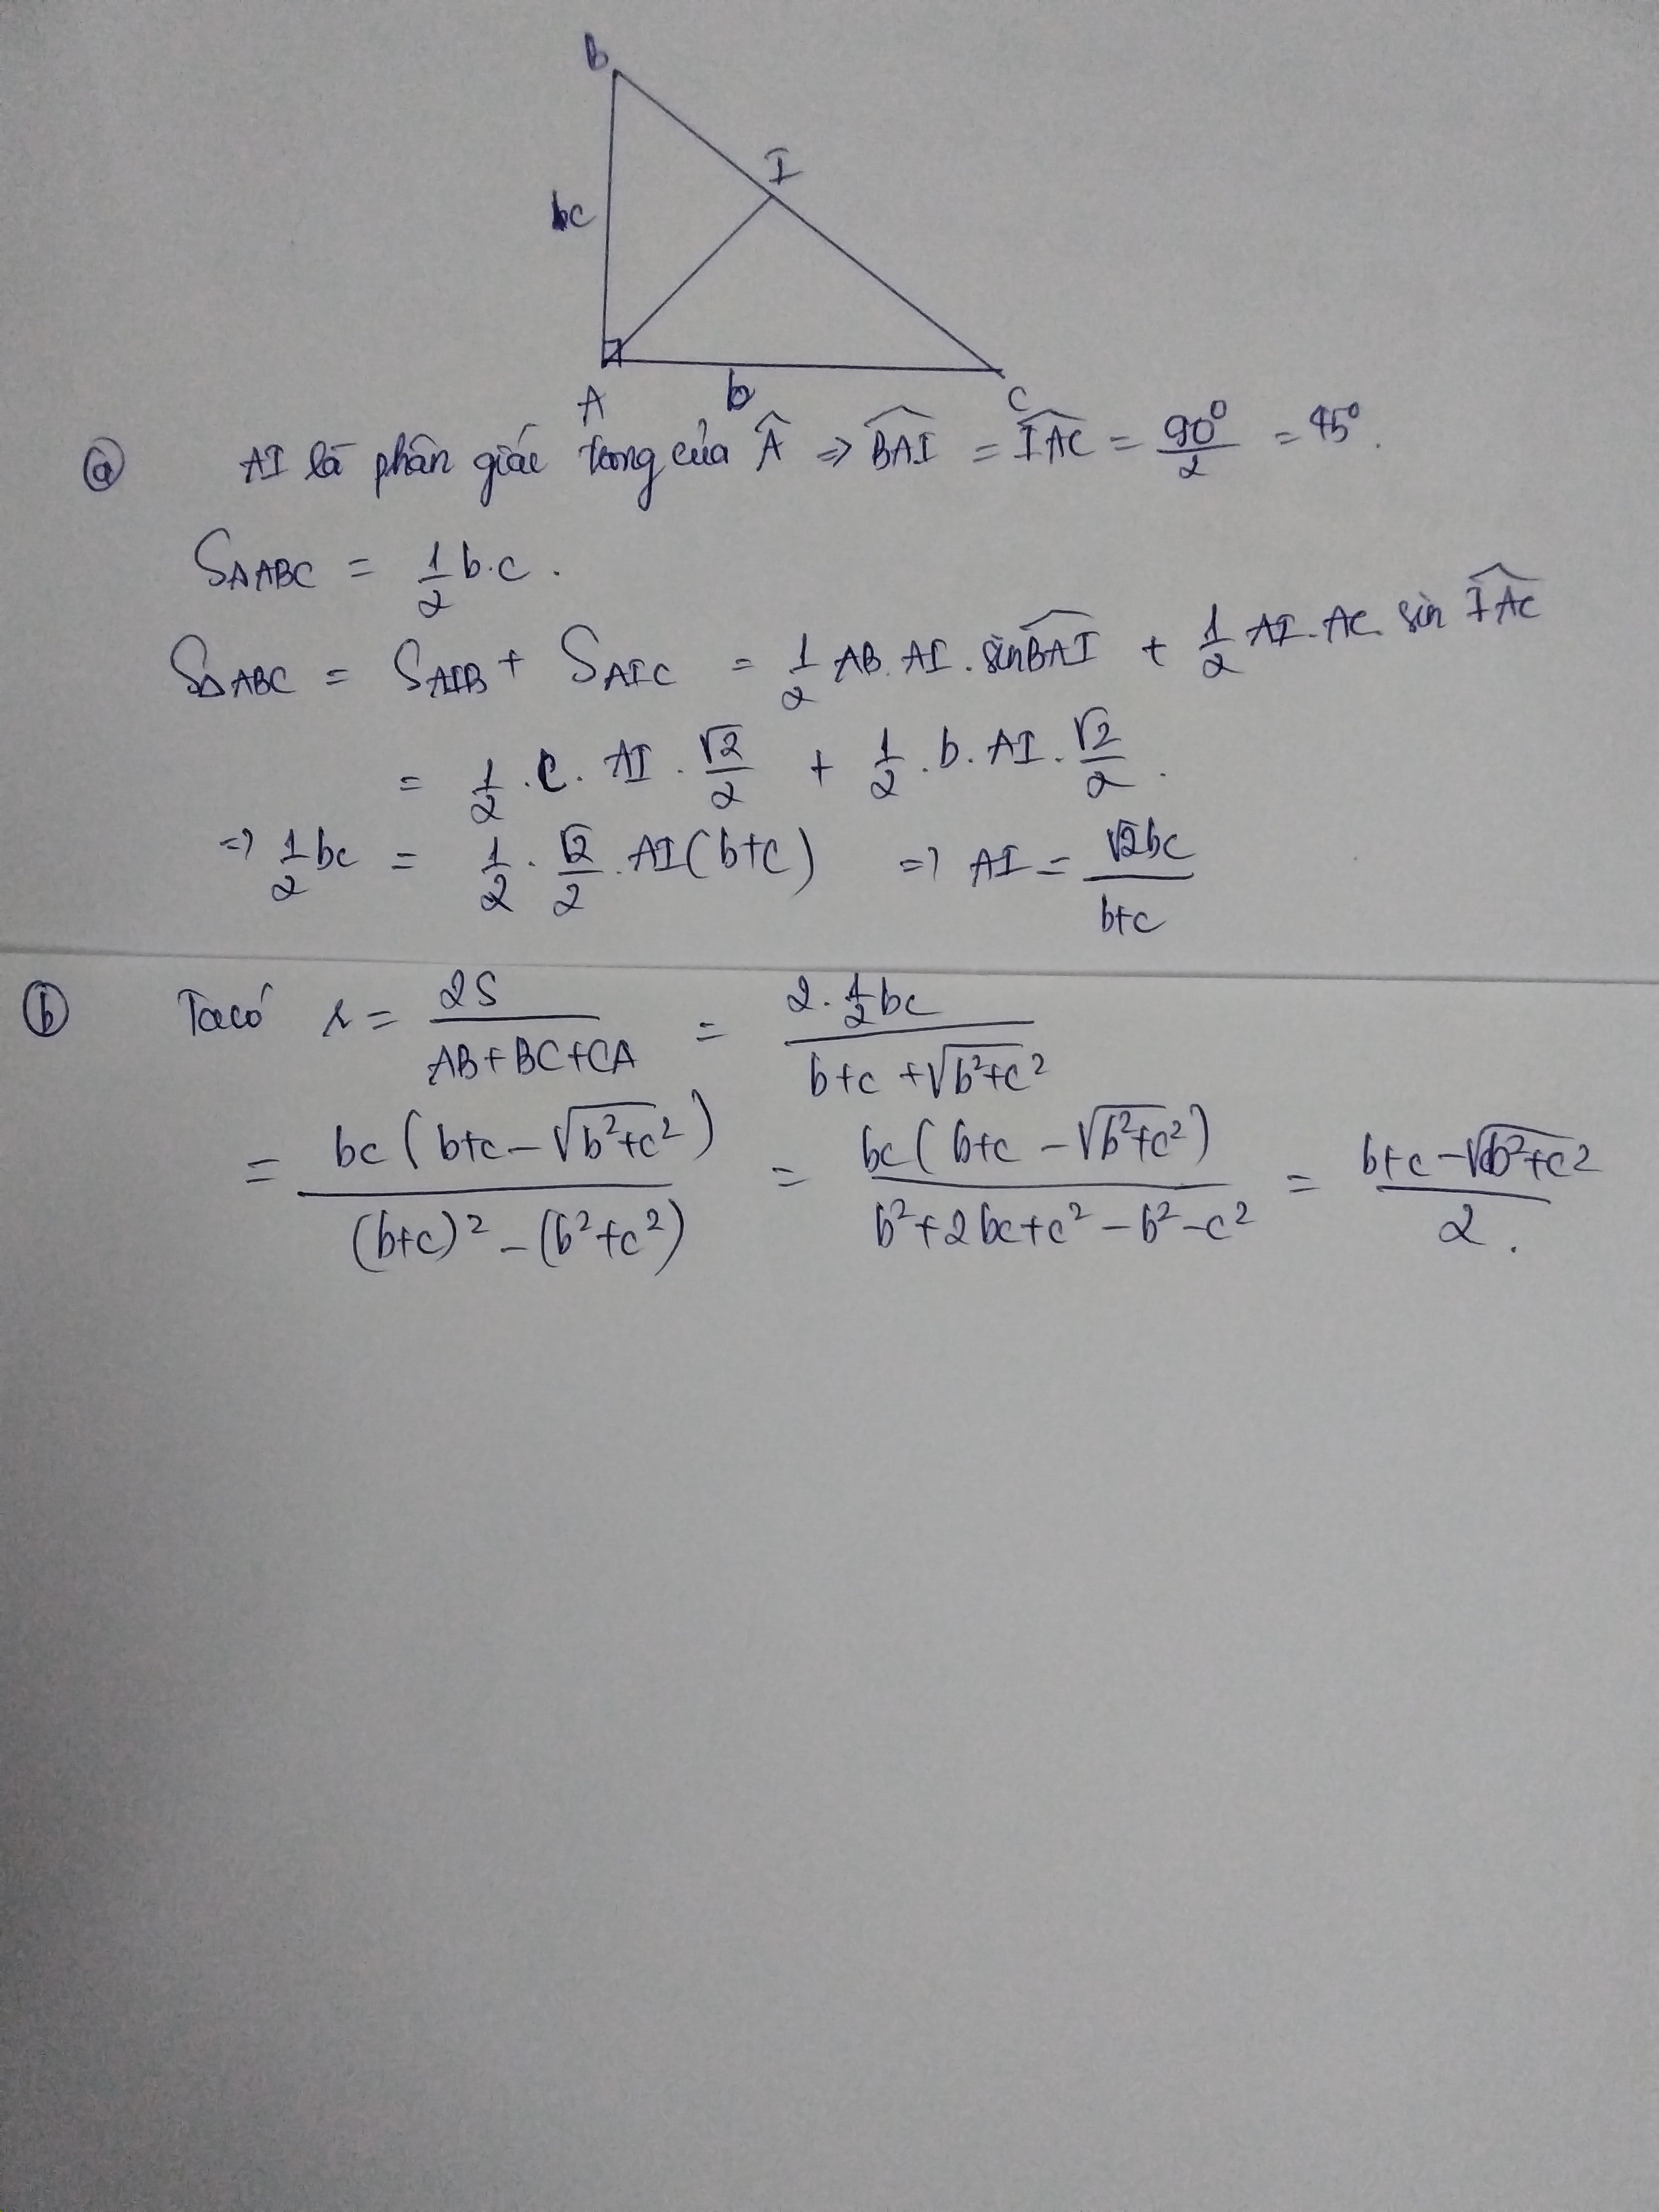 B
I
c
A
b
C
ⓐ AI là phân giác trong của Â ⇒ \widehat{BAI} = \widehat{IAC} = \frac{90^0}{2} = 45^0.
S_{ΔABC} = \frac{1}{2} b.c.
S_{ΔABC} = S_{AIB} + S_{AIC} = \frac{1}{2} AB.AI.sin\widehat{BAI} + \frac{1}{2} AI.AC.sin\widehat{IAC}
= \frac{1}{2}.c.AI.\frac{√2}{2} + \frac{1}{2}.b.AI.\frac{√2}{2}.
⇒ \frac{1}{2}bc = \frac{1}{2}.\frac{√2}{2}.AI(b+c) ⇒ AI = \frac{√2bc}{b+c}
ⓑ Ta có r = \frac{2S}{AB+BC+CA} = \frac{2.\frac{1}{2}bc}{b+c+\sqrt{b^2+c^2}}
= \frac{bc(b+c-\sqrt{b^2+c^2})}{(b+c)^2-(b^2+c^2)} = \frac{bc(b+c-\sqrt{b^2+c^2})}{b^2+2bc+c^2-b^2-c^2} = \frac{b+c-\sqrt{b^2+c^2}}{2}.